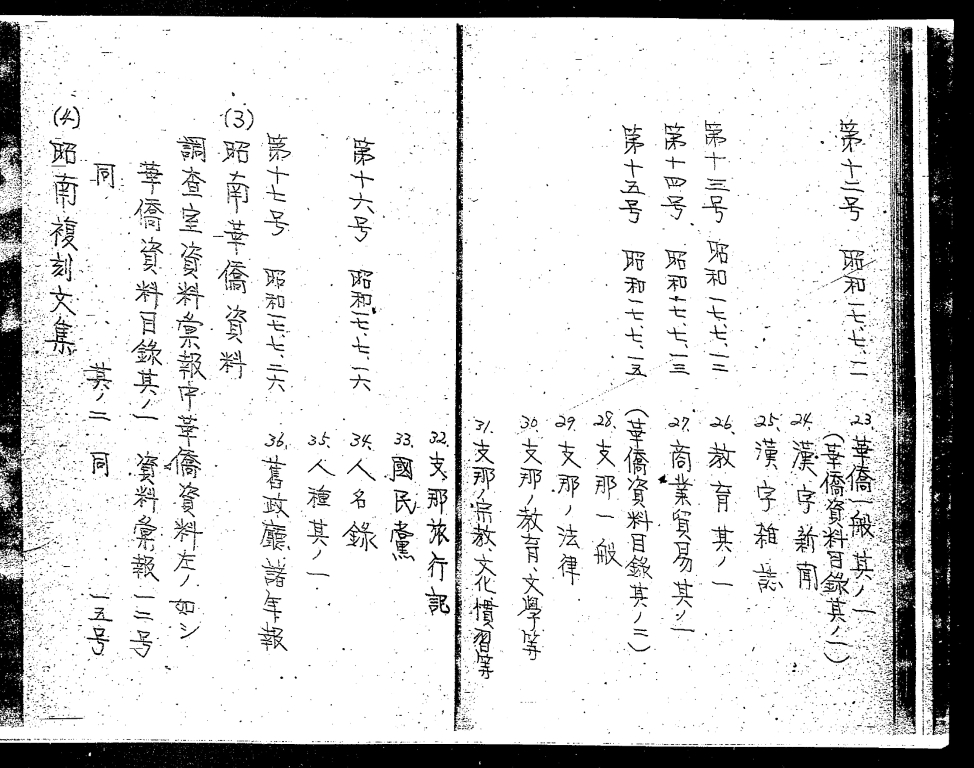 第十二号 昭和一七、七、二
23. 華僑一般其ノ一
(華僑資料目錄其ノ一)
24. 漢字新聞
25. 漢字雜誌
第十三号 昭和一七、七、三
26. 教育其ノ一
第十四号 昭和十七、七、一三
27. 商業貿易其ノ一
第十五号 昭和一七、七、一五
(華僑資料目錄其ノ二)
28. 支那一般
29. 支那ノ法律
30. 支那ノ教育、文學等
31. 支那ノ宗教、文化慣習等
32. 支那旅行記
33. 國民黨
第十六号 昭和一七、七、一六
34. 人名錄
35. 人種其ノ一
第十七号 昭和一七、七、二六
36. 舊政廳諸年報
(3) 昭南華僑資料
調査室資料彙報中華僑資料左ノ如シ
華僑資料目錄其ノ一 資料彙報一二号
同 其ノ二 同 一五号
(4) 昭南複刻文集